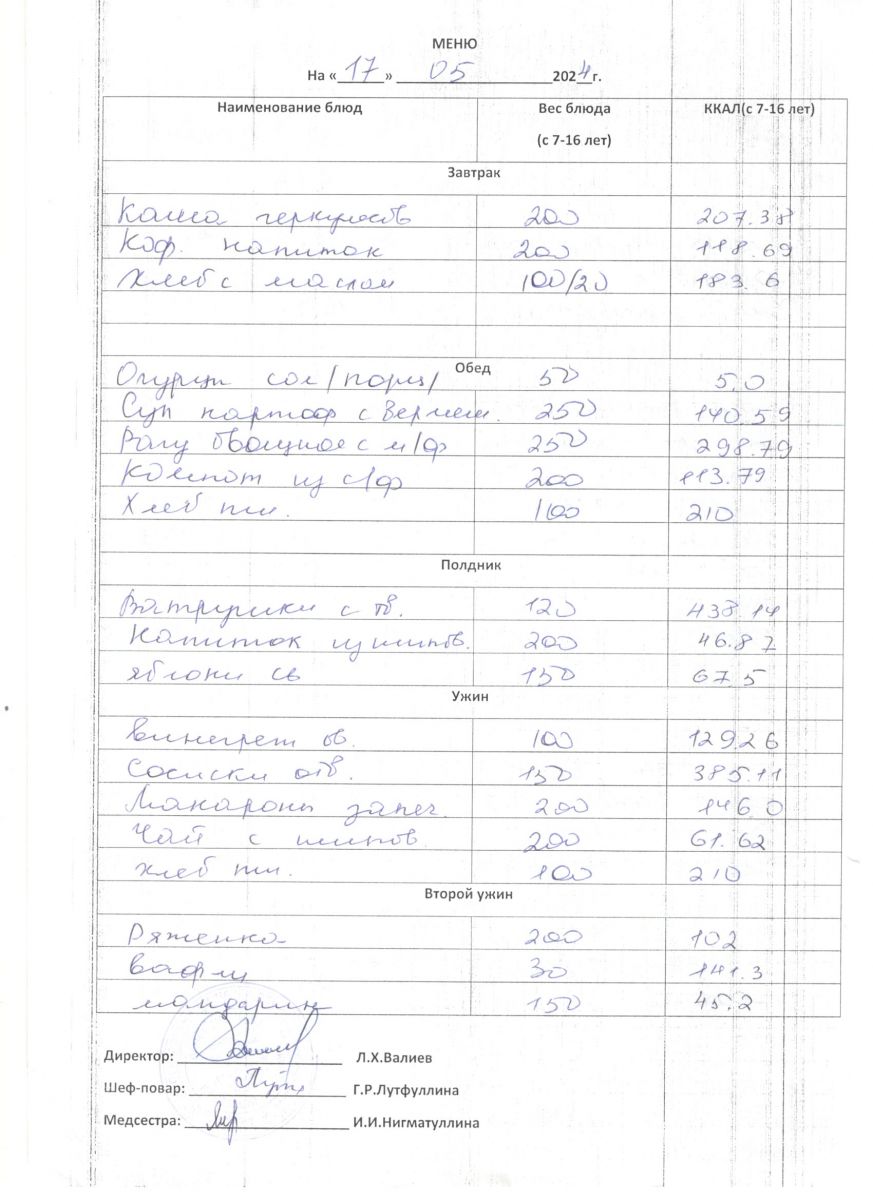 МЕНЮ
На «17» 05 2024 г.
Наименование блюд Вес блюда (с 7-16 лет) ККАЛ(с 7-16 лет)
Завтрак
Каша геркулесов 200 207.38
Коф. напиток 200 118.69
Хлеб с маслом 100/20 183.6
Обед
Огурцы сол /порц/ 50 5,0
Суп картоф с вермеш. 250 140.59
Рагу овощное с м/ф 250 298.79
Компот из с/ф 200 113.79
Хлеб пш. 100 210
Полдник
Ватрушки с тв. 120 438.14
Напиток из шипов. 200 46.87
яблоки св 150 67.5
Ужин
Винегрет ов. 100 129.26
Сосиски отв. 150 385.11
Макароны запеч. 200 146.0
Чай с шипов. 200 61.62
хлеб пш. 100 210
Второй ужин
Ряженка 200 102
вафли 30 141.3
мандарин 150 45.2
Директор: Л.Х.Валиев
Шеф-повар: Г.Р.Лутфуллина
Медсестра: И.И.Нигматуллина